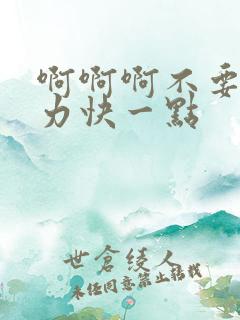 啊啊啊不要
力快一點
世倉綾人
未经同意禁止转载